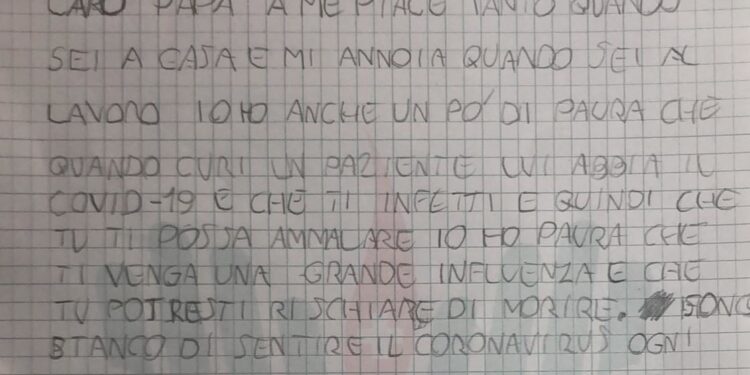 CARO PAPÀ A ME PIACE TANTO QUANDO
SEI A CASA E MI ANNOIA QUANDO SEI AL
LAVORO IO HO ANCHE UN PO' DI PAURA CHE
QUANDO CURI UN PAZIENTE LUI ABBIA IL
COVID-19 E CHE TI INFETTI E QUINDI CHE
TU TI POSSA AMMALARE IO HO PAURA CHE
TI VENGA UNA GRANDE INFLUENZA E CHE
TU POTRESTI RISCHIARE DI MORIRE. SONO
STANCO DI SENTIRE IL CORONAVIRUS OGNI